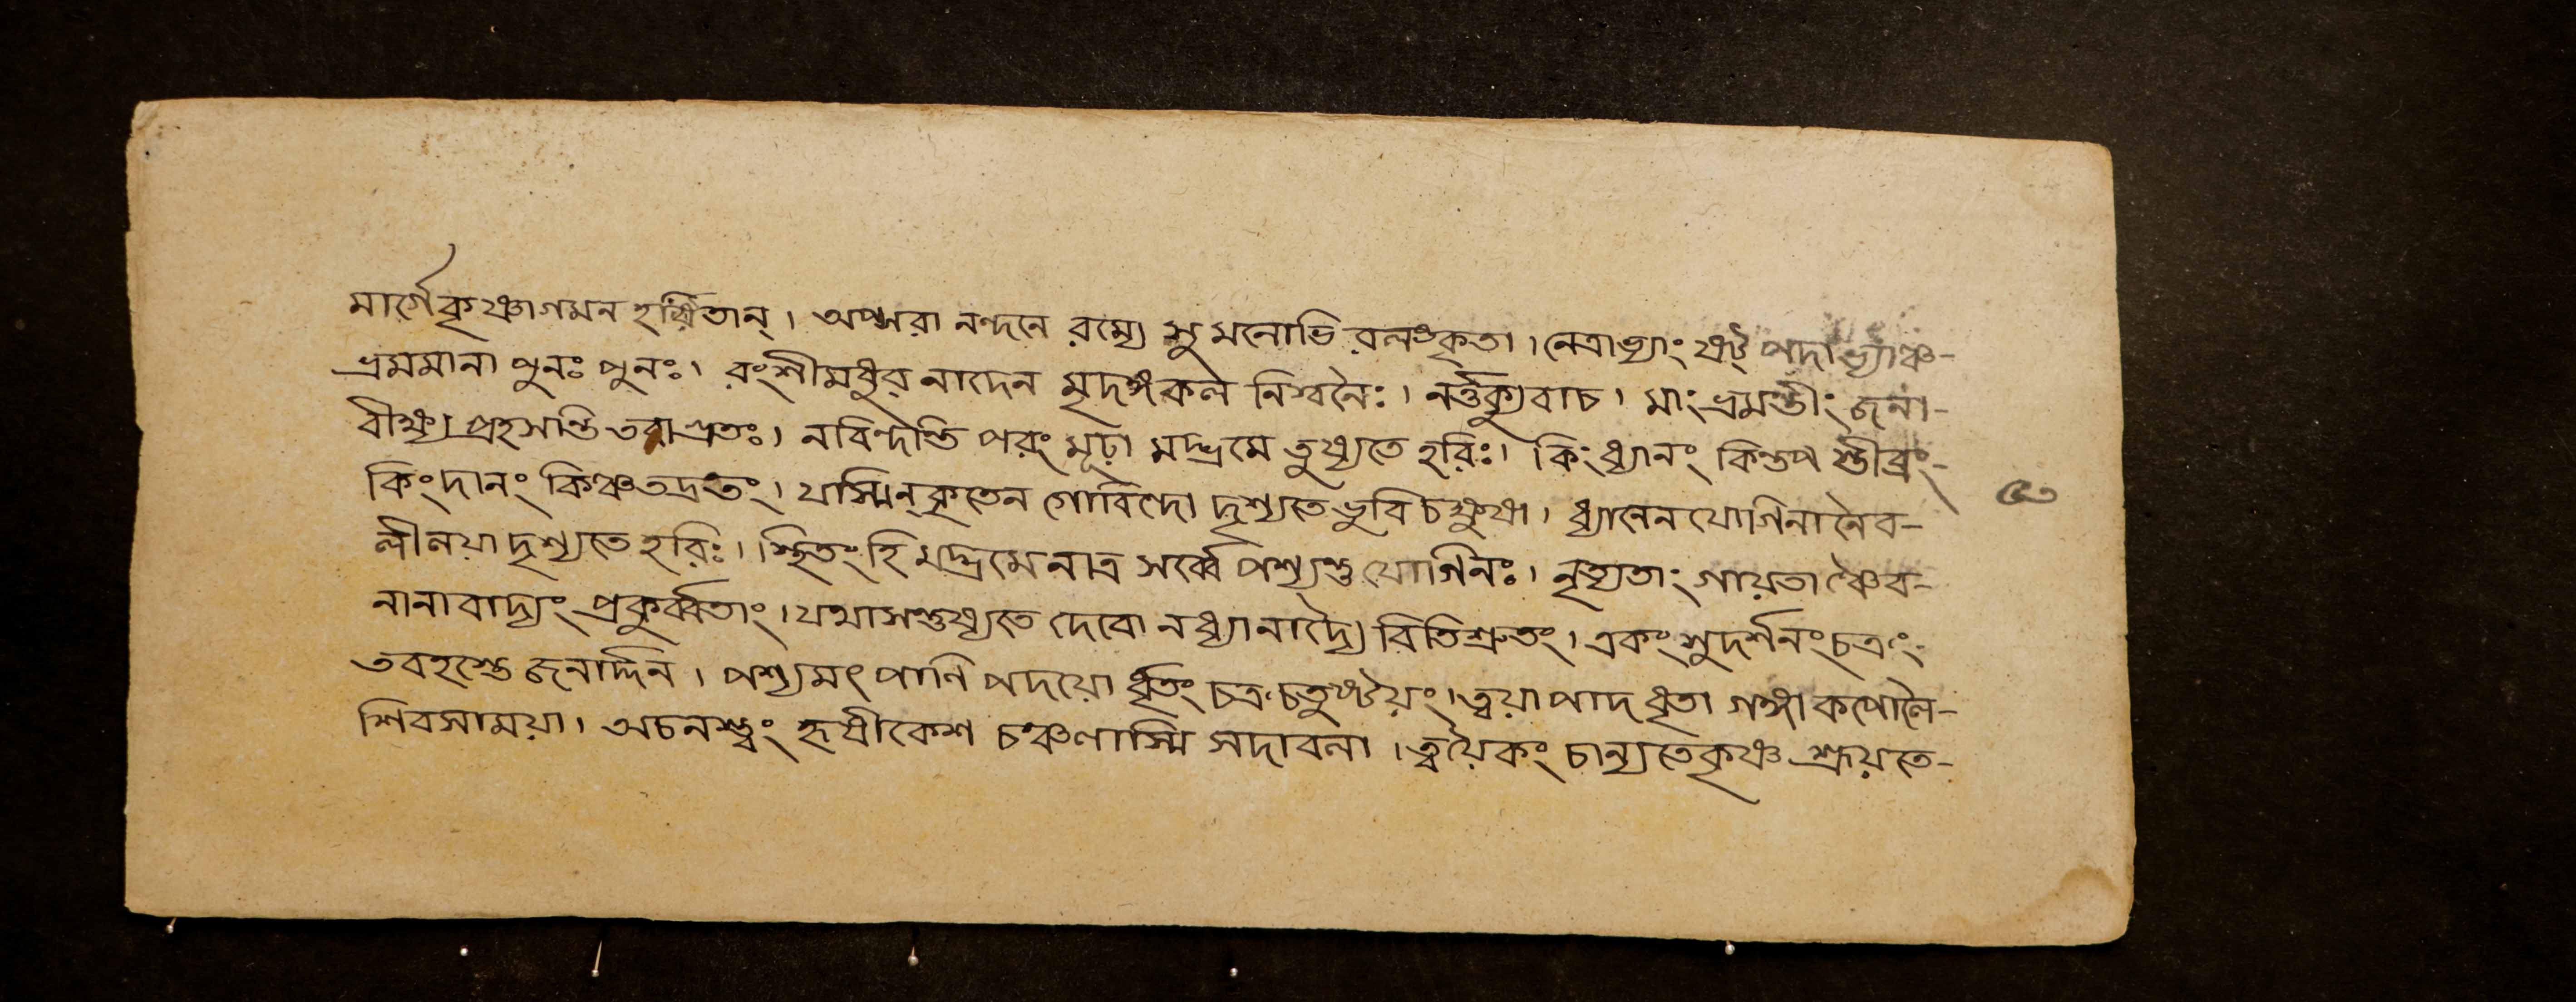 মার্গেকৃষ্ণাগমন হর্ষিতান্। অপ্সরা নন্দনে রম্যে সুমনোভি রলঙকৃতা। নেত্রাভ্যাং ষট্ পদাভ্যাঞ্চ-
ভ্রমমানা পুনঃ পুনঃ। বংশীমধুর নাদেন মৃদঙ্গকল নিশ্বনৈঃ। নর্ত্তক্যুবাচ। মাংভ্রমন্তীং জনা-
বীক্ষ্য প্রহসন্তি তবাগ্রতঃ। নবিন্দন্তি পরং মূঢ়া মদ্ভ্রমে তুষ্যতে হরিঃ। কিংধ্যানং কিন্তপ স্তীব্রং-
কিংদানং কিঞ্চতদ্রতং। যাস্মিন্কৃতেন গোবিন্দো দৃশ্যতেভুবিচক্ষুষা। ধ্যানেনযোগিনানৈব-
লীনয়া দৃশ্যতে হরিঃ। স্থিতং হি মদ্ভ্রমেনাত্র সর্ব্বেপশ্যন্তুযোগিনঃ। নৃত্যতাং গায়তাঞ্চৈব-
নানাবাদ্যং প্রকুর্ব্বতাং। যথাসন্তুষ্যতে দেবো নধ্যানাদ্যৈ রিতিশ্রুতং। একং সুদর্শনংচক্রং
তবহস্তে জনার্দ্দন। পশ্যমৎপাণি পদয়ো র্ধৃতং চক্রচতুষ্টয়ং। ত্বয়াপাদধৃতা গঙ্গা কপোলৈ-
শিবসাময়া। অচলস্ত্বং হৃষীকেশ চঞ্চলাস্মি সদাবলা। ত্বয়ৈকং চান্যতেকৃষ্ণ শ্রূয়তে-
৩